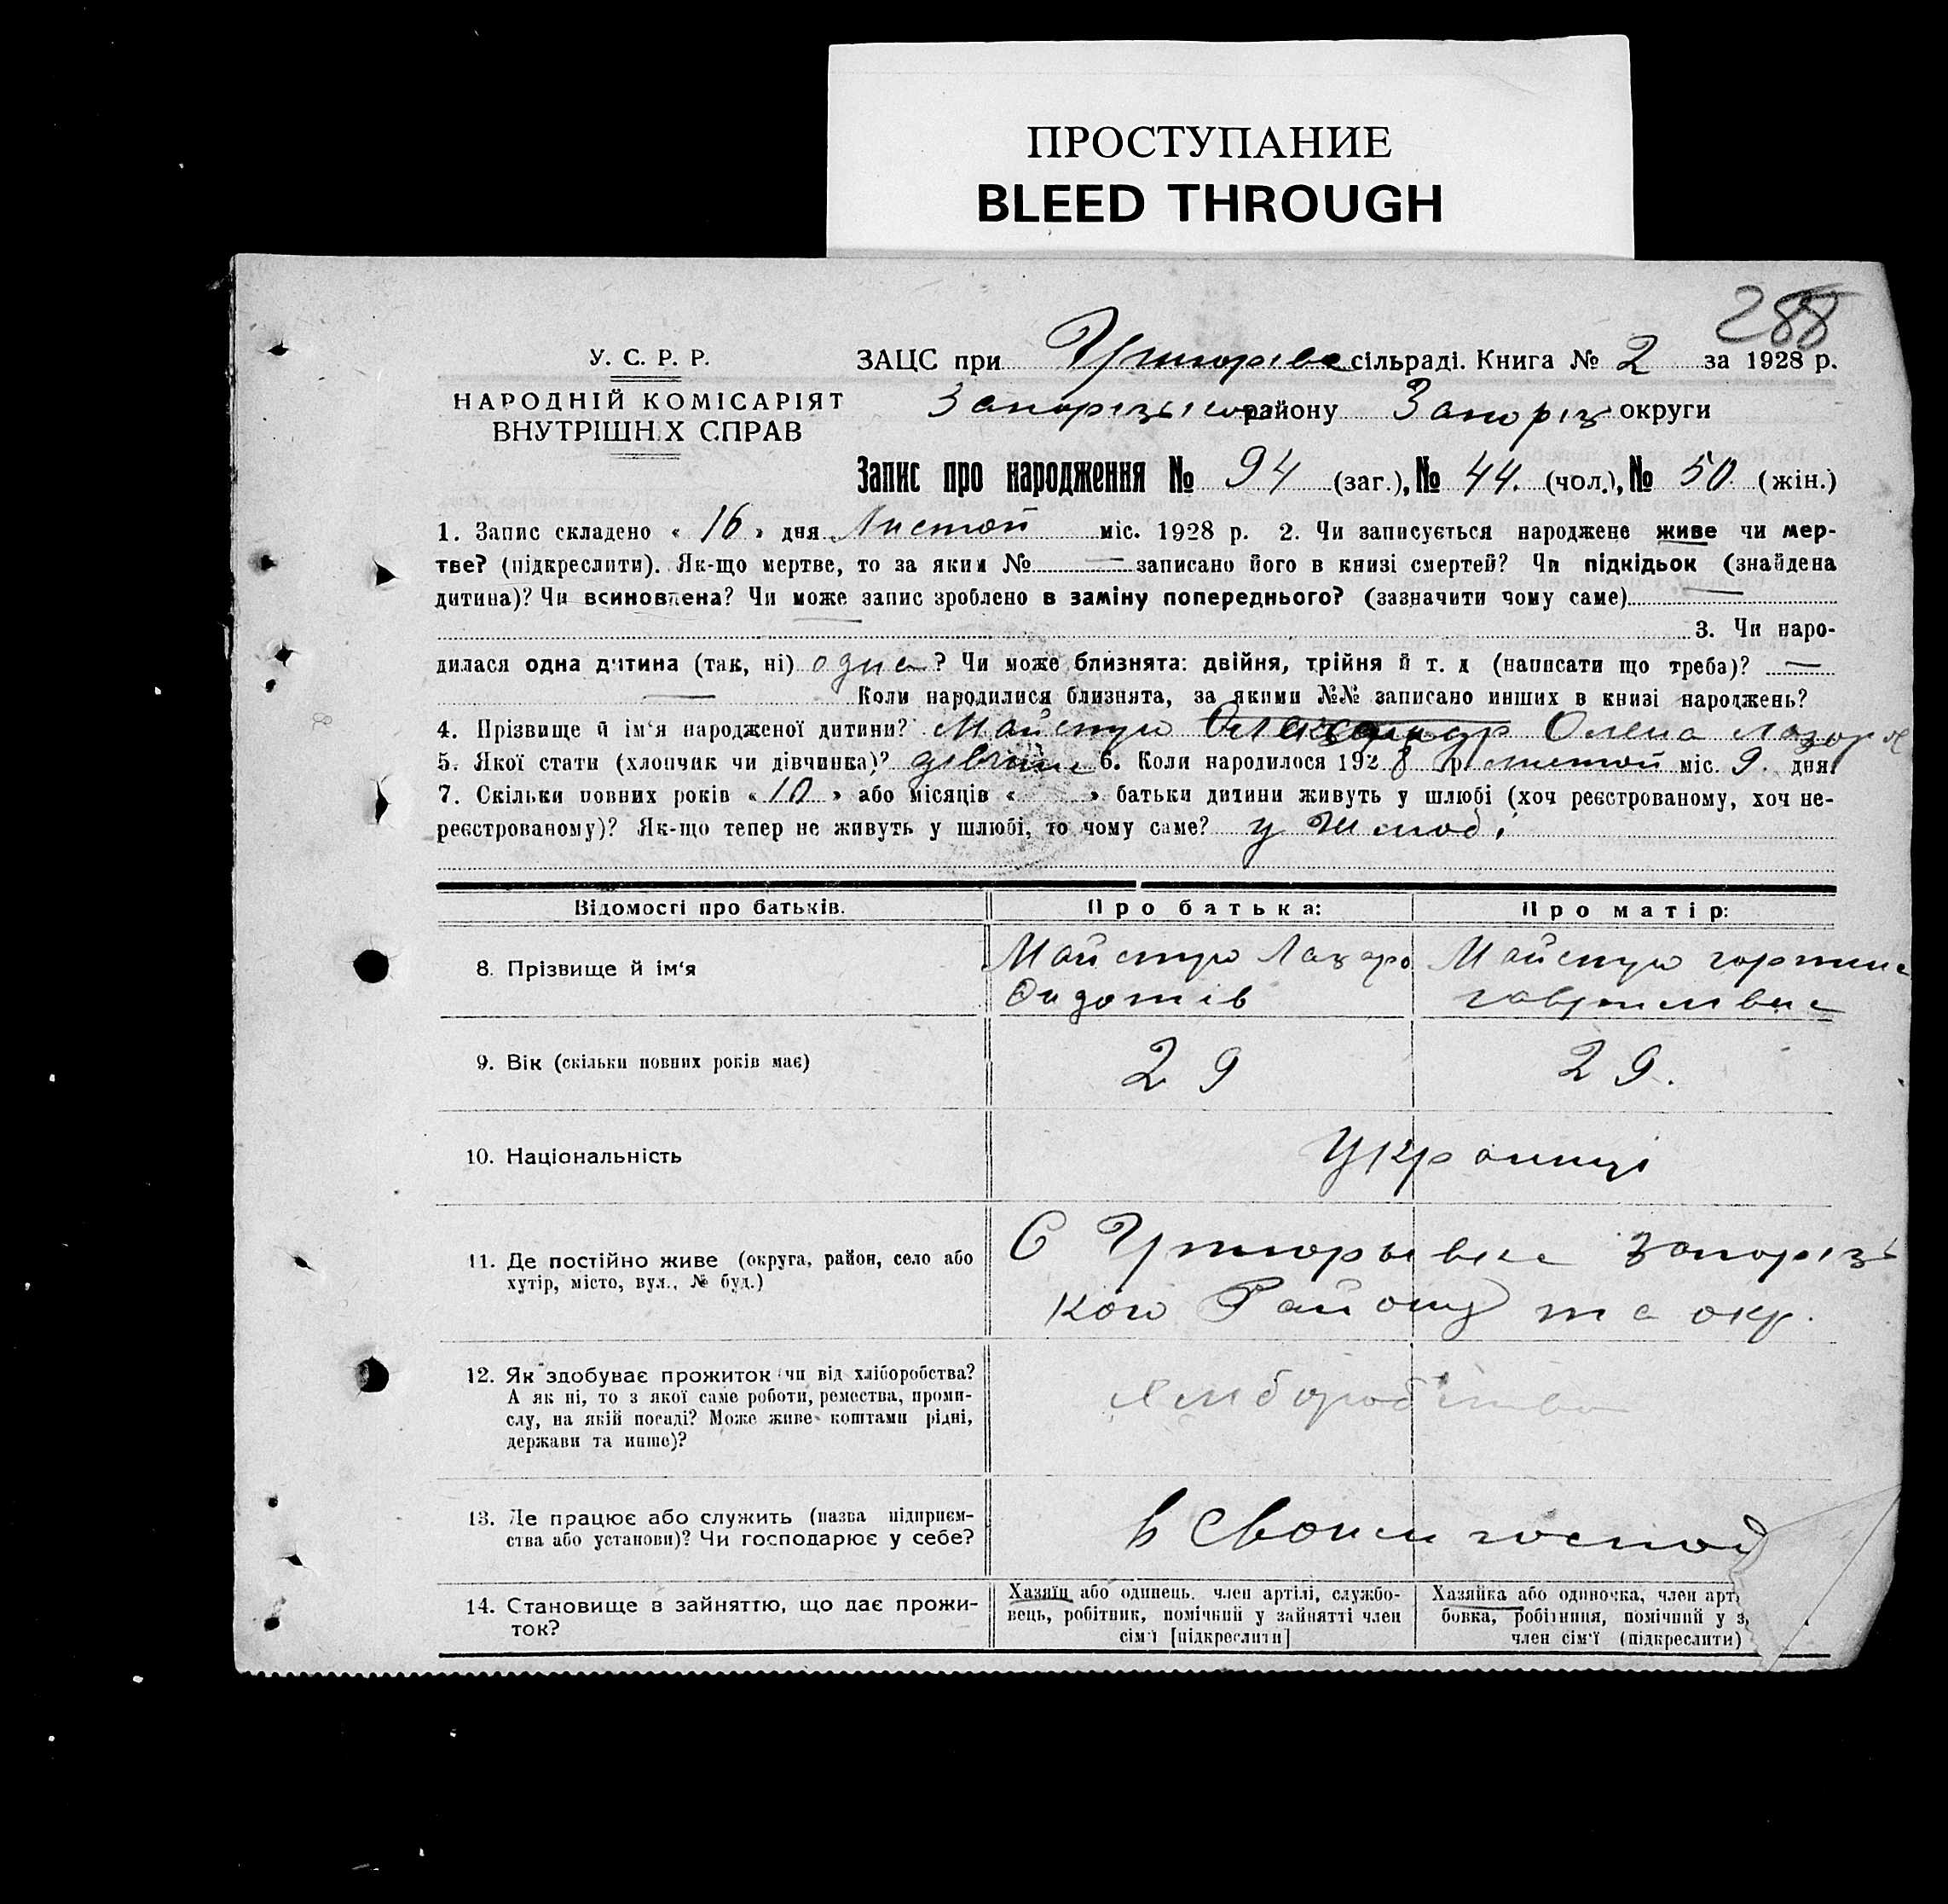 ПРОСТУПАНИЕ
BLEED THROUGH
288
У. С. Р. Р.
НАРОДНІЙ КОМІСАРІЯТ
ВНУТРІШНІХ СПРАВ
ЗАЦС при сільраді. Книга № 2 за 1928 р.
району Запоріз округи
Запис про народження № 94 (заг.), № 44. (чол.), № 50 (жін.)
1. Запис складено « 16 » дня Листоп міс. 1928 р. 2. Чи записується народжене живе чи мер-
тве? (підкреслити). Як-що мертве, то за яким № — записано його в книзі смертей? Чи підкідьок (знайдена
дитина)? Чи всиновлена? Чи може запис зроблено в заміну попереднього? (зазначити чому саме)
3. Чи наро-
дилася одна дитина (так, ні) одна? Чи може близнята: двійня, трійня й т. д (написати що треба)? —
— Коли народилися близнята, за якими №№ записано инших в книзі народжень?
4. Прізвище й ім'я народженої дитини? Майстро Олександр Олена
5. Якої стати (хлопчик чи дівчинка)? 6. Коли народилося 1928 р. листоп міс. 9. дня.
7. Скільки повних років « 10 » або місяців « » батьки дитини живуть у шлюбі (хоч реєстрованому, хоч не-
реєстрованому)? Як-що тепер не живуть у шлюбі, то чому саме? у Шлюбі
Відомості про батьків.
Про батька:
Про матір:
8. Прізвище й ім'я
Майстро Лазар
Майстро
9. Вік (скільки повних років має)
29
29.
10. Національність
Українці
11. Де постійно живе (округа, район, село або
хутір, місто, вул., № буд.)
С Запорізь
кого Району та окр.
12. Як здобуває прожиток (чи від хліборобства?
А як ні, то з якої саме роботи, ремества, проми-
слу, на якій посаді? Може живе коштами рідні,
держави та инше)?
13. Де працює або служить (назва підприєм-
ства або установи)? Чи господарює у себе?
в своїм господ
14. Становище в зайняттю, що дає прожи-
ток?
Хазяїн або одинець, член артілі, службо-
вець, робітник, помічний у зайнятті член
сім'ї [підкреслити]
Хазяйка або одиночка, член арт
бовка, робітниця, помічний у з
член сім'ї (підкреслити)